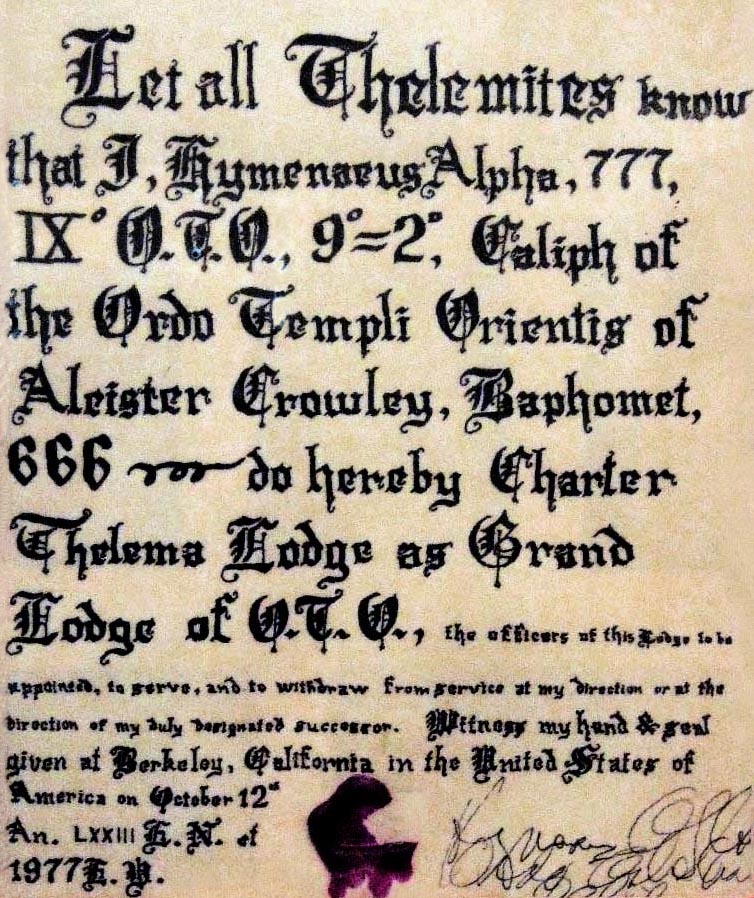 Let all Thelemites know
that I, Hymenaeus Alpha, 777,
IX° O.T.O., 9°=2°, Caliph of
the Ordo Templi Orientis of
Aleister Crowley, Baphomet,
666 do hereby Charter
Thelema Lodge as Grand
Lodge of O.T.O., the officers of this Lodge to be
appointed, to serve, and to withdraw from service at my direction or at the
direction of my duly designated successor. Witness my hand & seal
given at Berkeley, California in the United States of
America on October 12
An. LXXIII E.N. et
1977 E.V.